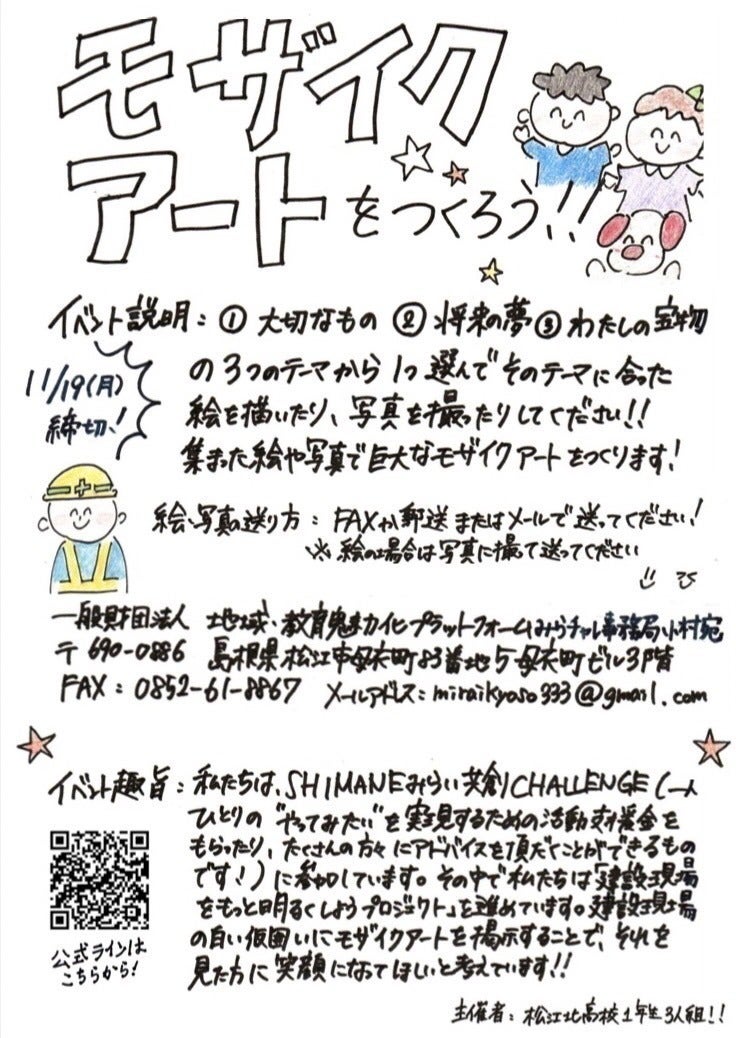 モザイク
アートをつくろう!!
イベント説明：① 大切なもの ② 将来の夢 ③ わたしの宝物
の3つのテーマから1つ選んでそのテーマに合った
絵を描いたり、写真を撮ったりしてください!!
集まった絵や写真で巨大なモザイクアートをつくります!
11/19(月)
締切!
絵・写真の送り方：FAXか郵送またはメールで送ってください!
※絵の場合は写真に撮って送ってください
一般財団法人 地域・教育魅力化プラットフォームみらチャレ事務局 小村宛
〒690-0886 島根県松江市母衣町83番地5母衣町ビル3階
FAX：0852-61-8867 メールアドレス：miraikyoso333@gmail.com
イベント趣旨：私たちは、SHIMANEみらい共創CHALLENGE(一人
ひとりの"やってみたい"を実現するための活動支援金を
もらったり、たくさんの方々にアドバイスを頂だくことができるもの
です!)に参加しています。その中で私たちは「建設現場
をもっと明るくしようプロジェクト」を進めています。建設現場
の白い仮囲いにモザイクアートを掲示することで、それを
見た方に笑顔になってほしいと考えています!!
公式ラインは
こちらから!
主催者：松江北高校1年生3人組!!